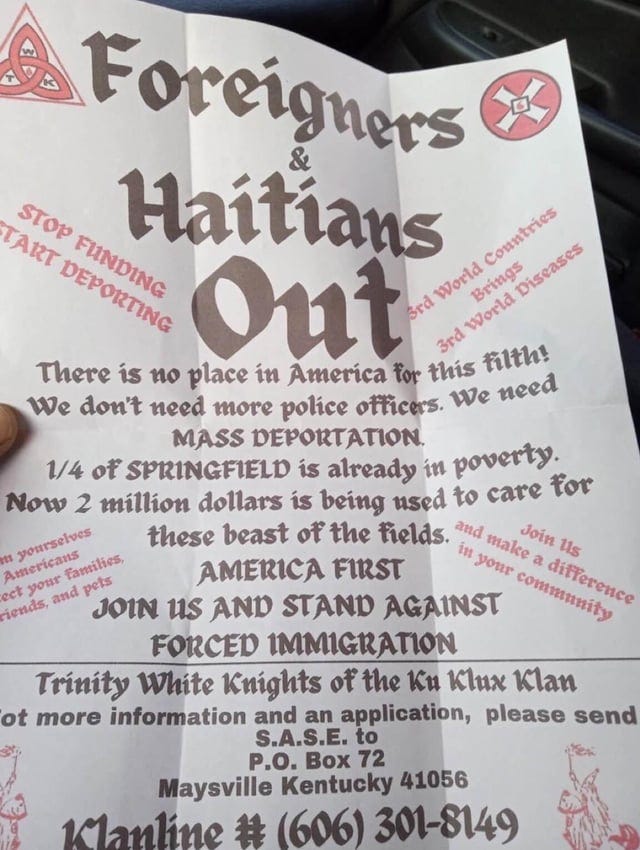 W
T K
Foreigners
&
Haitians
Out
STOP FUNDING
START DEPORTING
3rd World Countries
Brings
3rd World Diseases
There is no place in America for this filth!
We don't need more police officers. We need
MASS DEPORTATION.
1/4 of SPRINGFIELD is already in poverty.
Now 2 million dollars is being used to care for
these beast of the fields.
yourselves
Americans
your families,
and pets
Join Us
and make a difference
in your community
AMERICA FIRST
JOIN US AND STAND AGAINST
FORCED IMMIGRATION
Trinity White Knights of the Ku Klux Klan
more information and an application, please send
S.A.S.E. to
P.O. Box 72
Maysville Kentucky 41056
Klanline # (606) 301-8149